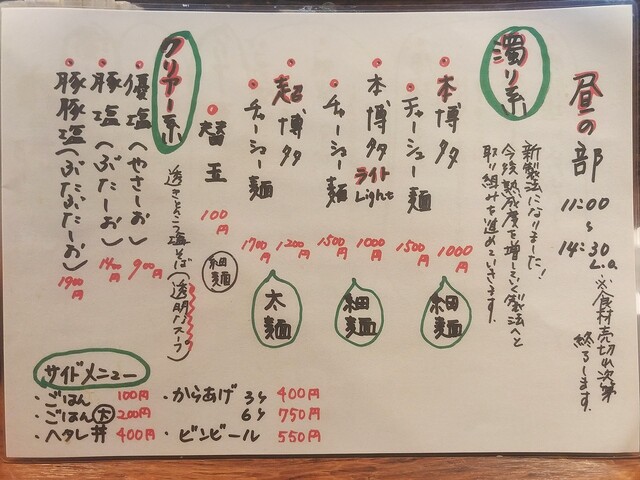 昼の部
11:00～14:30
L.o.
※食材売切れ次第
終了します。
濁り系
新製法になりました!
今後熟成度を増していく製法へと
取り組みを進めていきます。
本博多 1000円
チャーシュー麺 1500円
細麺
本博多ライトLight 1000円
チャーシュー麺 1500円
細麺
超博多 1200円
チャーシュー麺 1700円
太麺
替玉 100円
細麺
クリアー系
透きとおった塩そば(透明スープ)
優塩(やさしお) 900円
豚塩(ぶたしーお) 1400円
豚豚塩(ぶたぶたしーお) 1900円
サイドメニュー
・ごはん 100円
・ごはん大 200円
・ヘタレ丼 400円
・からあげ 3ケ 400円
6ケ 750円
・ビンビール 550円